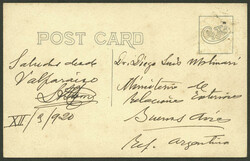 POST CARD
Saludos desde
Valparaíso
XII/3/920
Dr. Diego Luis Molinari
Ministerio de
Relaciones Exteriores
Buenos Aires
Rep. Argentina